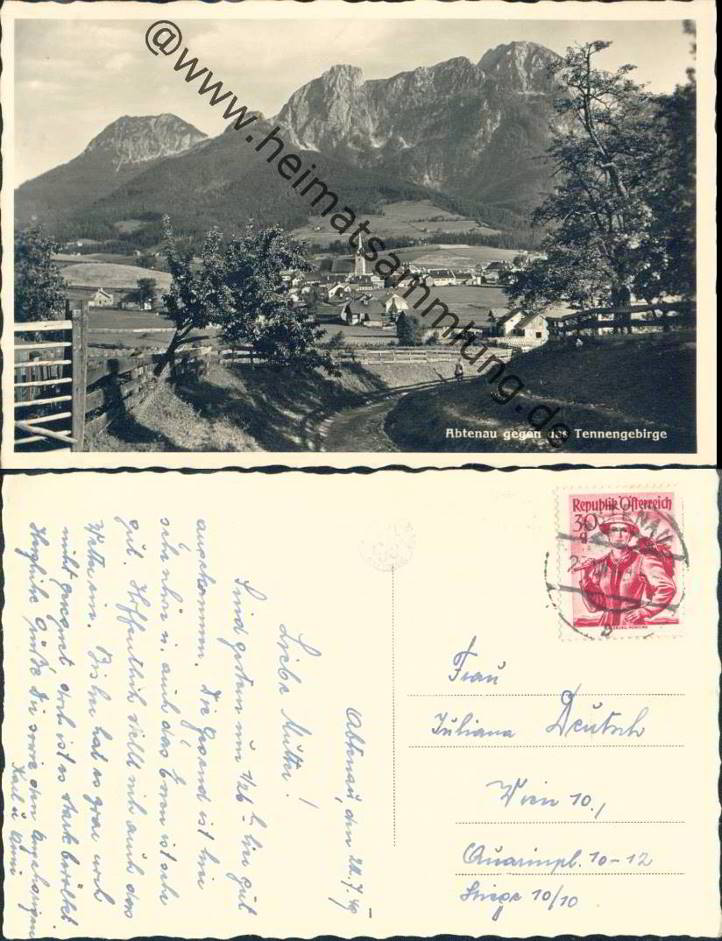 @www.heimatsammlung.de
Abtenau gegen das Tennengebirge
Republik Österreich
30
ABTENAU
Abtenau, den 24.7.49
Liebe Mutter!
Sind gestern um 1/2 6 h hier gut
angekommen. Die Gegend ist hier
sehr schön u. auch das Essen ist sehr
gut. Hoffentlich stellt sich auch das
Wetter ein. Bisher hat es zwar noch
nicht geregnet doch ist es stark bewölkt.
Herzliche Grüße Dir sowie den Angehörigen
Karl u.
Frau
Juliana Deutsch
Wien 10.,
Quarinpl. 10-12
Stiege 10/10